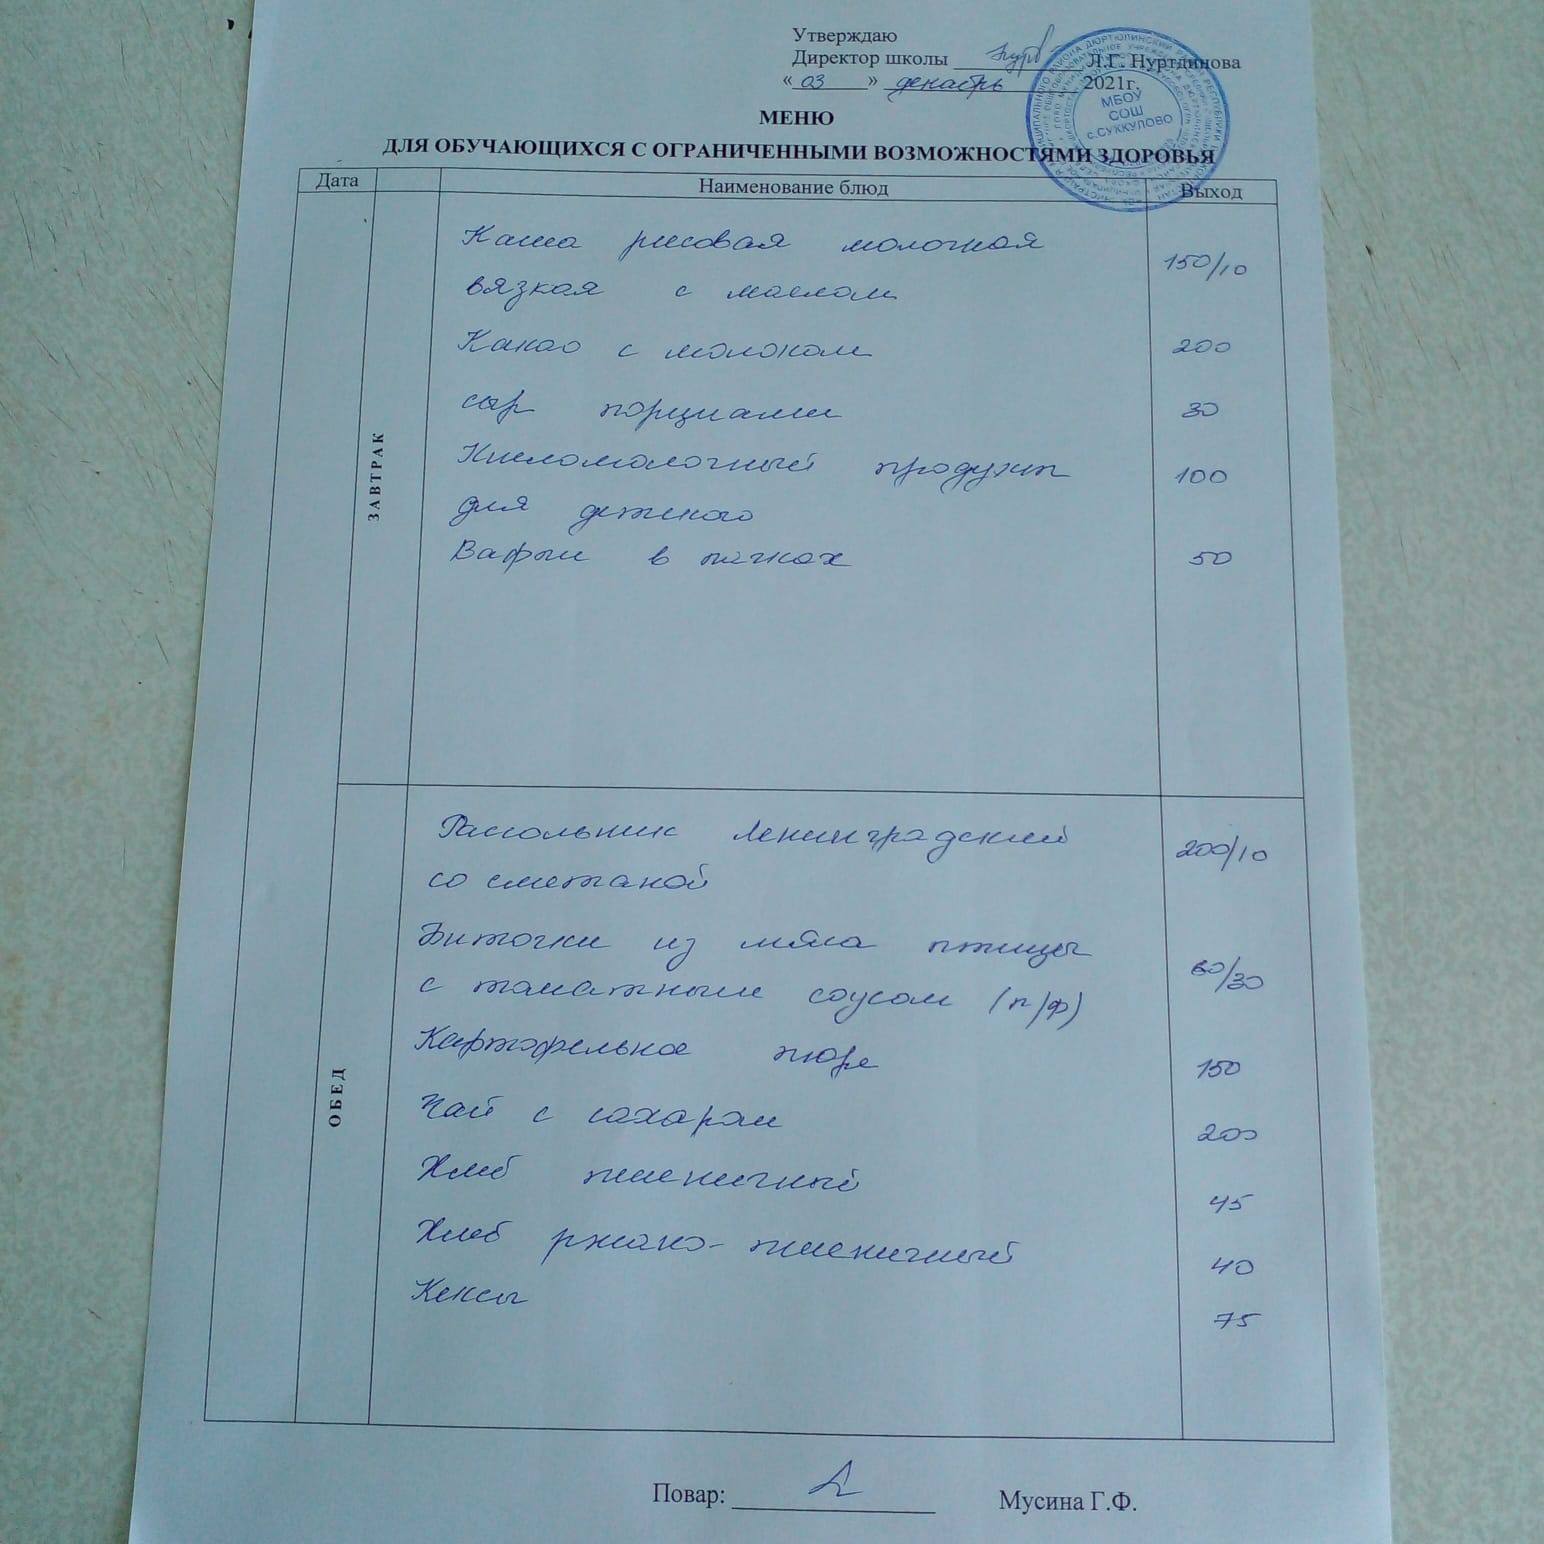 Утверждаю
Директор школы Л.Г. Нуртдинова
« 03 » декабрь 2021г.
МБОУ
СОШ
с.СУККУЛОВО
МЕНЮ
ДЛЯ ОБУЧАЮЩИХСЯ С ОГРАНИЧЕННЫМИ ВОЗМОЖНОСТЯМИ ЗДОРОВЬЯ
Дата Наименование блюд Выход
ЗАВТРАК
Каша рисовая молочная 150/10
вязкая с маслом
Какао с молоком 200
сыр порциами 30
Кисломолочный продукт 100
для детского
Вафли в пачках 50
ОБЕД
Рассольник Ленинградский 200/10
со сметаной
Биточки из мяса птицы 60/30
с томатным соусом (п/ф)
Картофельное пюре 150
Чай с сахаром 200
Хлеб пшеничный 45
Хлеб ржано-пшеничный 40
Кексы 75
Повар: Мусина Г.Ф.